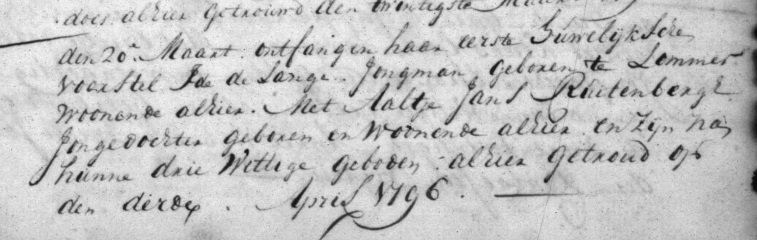 alhier Getrouwd den twintigste Maart
den 20ᵉ Maart ontfangen haar eerste Huwelijkse
Voorstel de Lange. Jongman geboren te Lemmer
woonende alhier. Met Aaltje Jans Ruitenberg
Jongedochter geboren en Woonende alhier. en Zijn na
hunne drie Wettige geboden alhier Getroud op
den derde. April 1796.